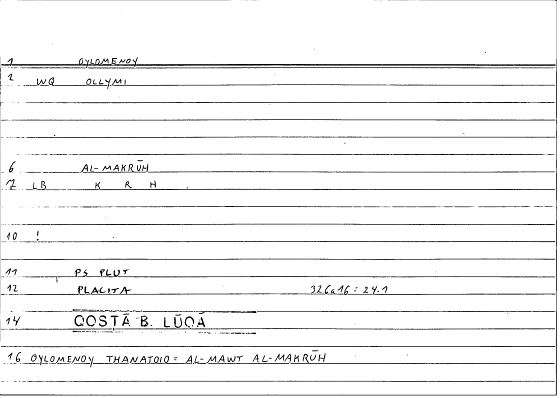 1 OYLOMENOY
2 WQ OLLYMI
6 AL-MAKRŪH
7 LB K R H
10 !
11 PS PLUT
12 PLACITA 326a16 = 24.1
14 QOSTĀ B. LŪQĀ
16 OYLOMENOY THANATOIO = AL-MAWT AL-MAKRŪH